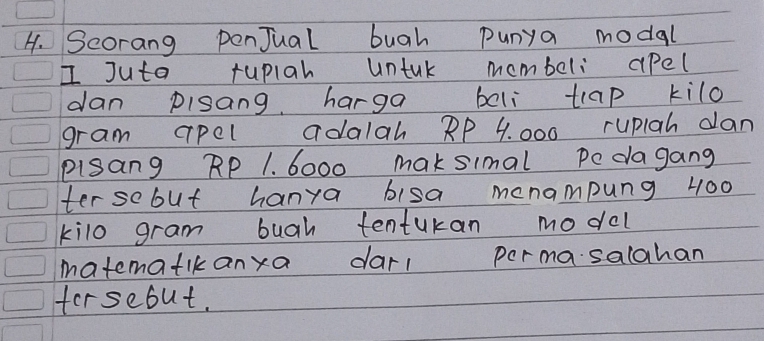 4. Seorang penjual buah punya modal
1 Juta rupiah untuk membeli apel
dan pisang. harga beli tiap kilo
gram apel adalah RP 4.000 rupiah dan
pisang RP 1.6000 maksimal pedagang
tersebut hanya bisa menampung 400
kilo gram buah tentukan model
matematikanya dari permasalahan
tersebut.